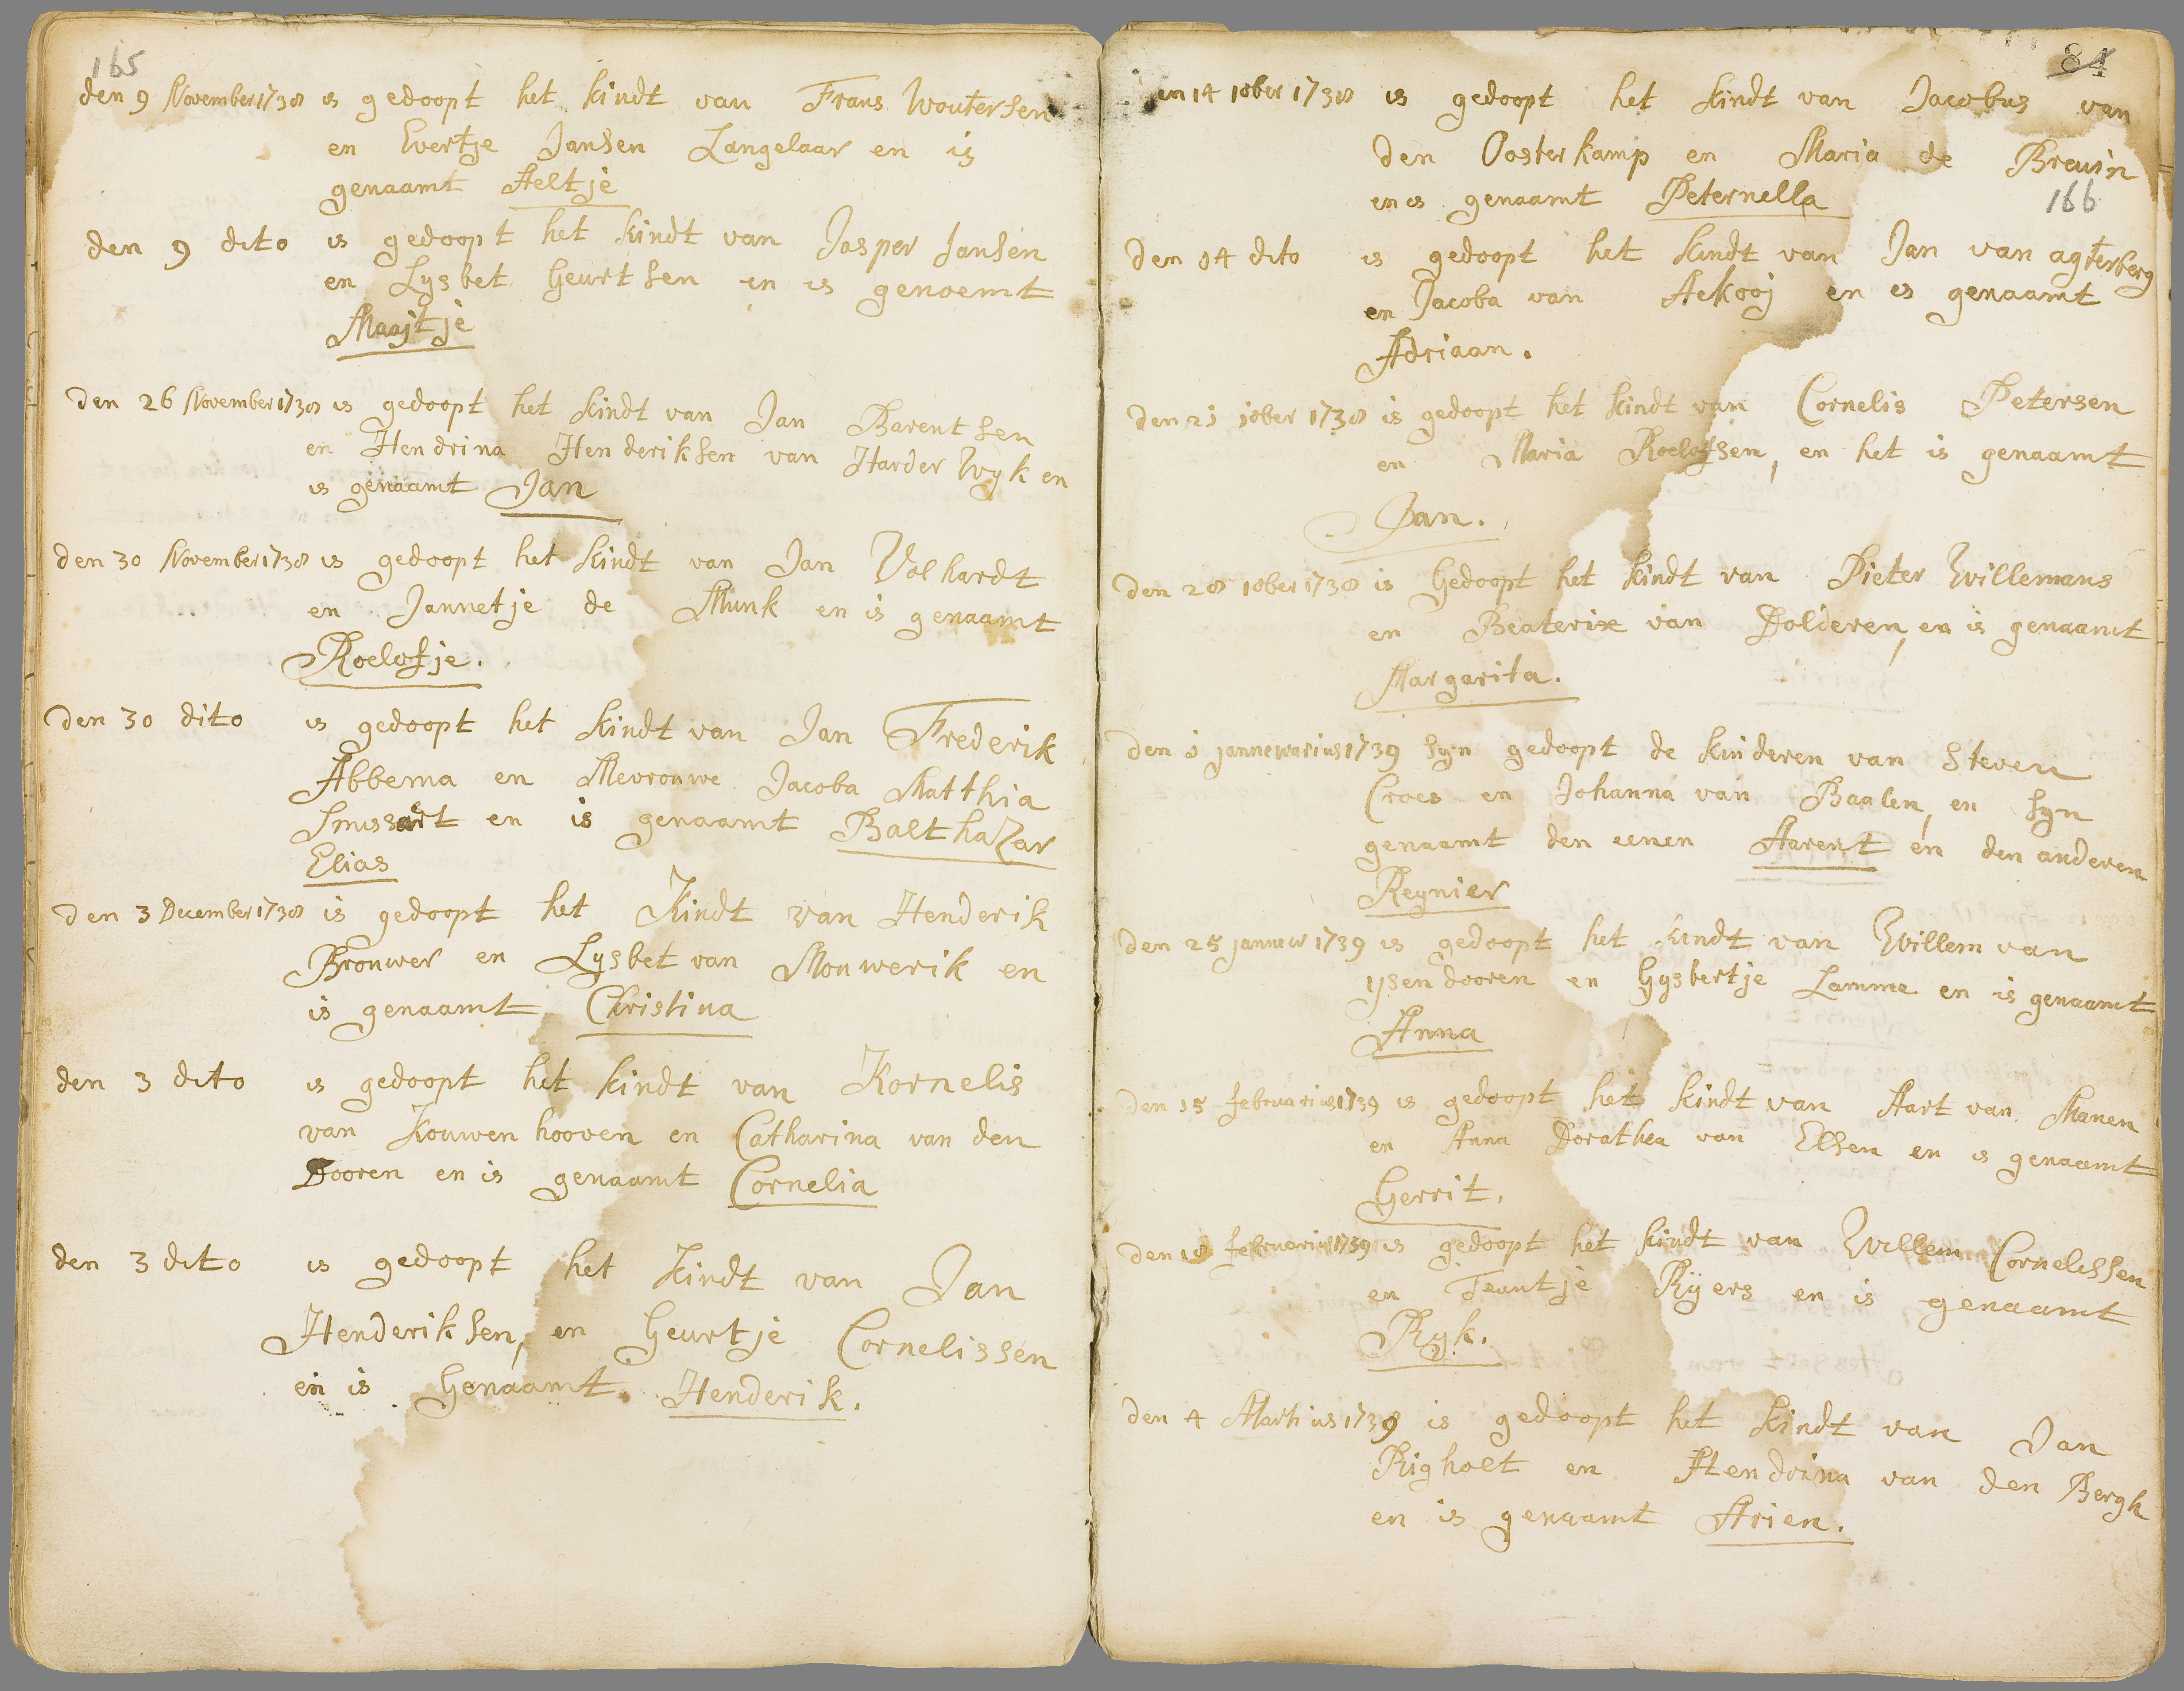 165
den 9 November 1738 is gedoopt het kindt van Frans Woutersen
en Evertje Jansen Langelaar en is
genaamt Aeltje
den 9 dito is gedoopt het kindt van Jasper Jansen
en Lysbet Geurtsen en is genoemt
Maajtje
den 26 November 1738 is gedoopt het kindt van Jan Barentsen
en Hendrina Henderiksen van Harder Wyk en
is genaamt Jan
den 30 November 1738 is gedoopt het kindt van Jan Volhardt
en Jannetje de Munk en is genaamt
Roelofje.
den 30 dito is gedoopt het kindt van Jan Frederik
Abbema en Mevrouwe Jacoba Matthia
en is genaamt Balthazar
Elias
den 3 December 1738 is gedoopt het Kindt van Henderik
Brouwer en Lysbet van Mouwerik en
is genaamt Christina
den 3 dito is gedoopt het kindt van Kornelis
van Kouwenhooven en Catharina van den
Dooren en is genaamt Cornelia
den 3 dito is gedoopt het kindt van Jan
Henderiksen, en Geurtje Cornelissen
en is Genaamt Henderik.
84
en 14 10ber 1738 is gedoopt het kindt van Jacobus van
den Oosterkamp en Maria de Breuin
en is genaamt Peternella
166
den 14 dito is gedoopt het kindt van Jan van agterberg
en Jacoba van Aekooj en es genaamt
Adriaan.
den 21 10ber 1738 is gedoopt het kindt van Cornelis Petersen
en Maria Roelofsen, en het is genaamt
Jan.
den 28 10ber 1738 is Gedoopt het kindt van Pieter Willemans
en Beaterixe van Dolderen, en is genaamt
Margarita.
den 1 jannewarius 1739 syn gedoopt de kinderen van Steven
Croes en Johanna van Baalen, en syn
genaamt den eenen Aarent en den anderen
Reynier
den 25 jannew 1739 is gedoopt het kindt van Willem van
ysendooren en Gysbertje Lamme en is genaamt
Anna
den 15 februarius 1739 is gedoopt het kindt van Aart van Manen
en Anna Dorathea van Elsen en is genaamt
Gerrit.
den 18 februarius 1739 is gedoopt het kindt van Willem Cornelissen
en Teuntje Rÿers en is genaamt
Ryk.
den 4 Martius 1739 is gedoopt het kindt van Jan
Righolt en Hendrina van den Bergh
en is genaamt Arien.